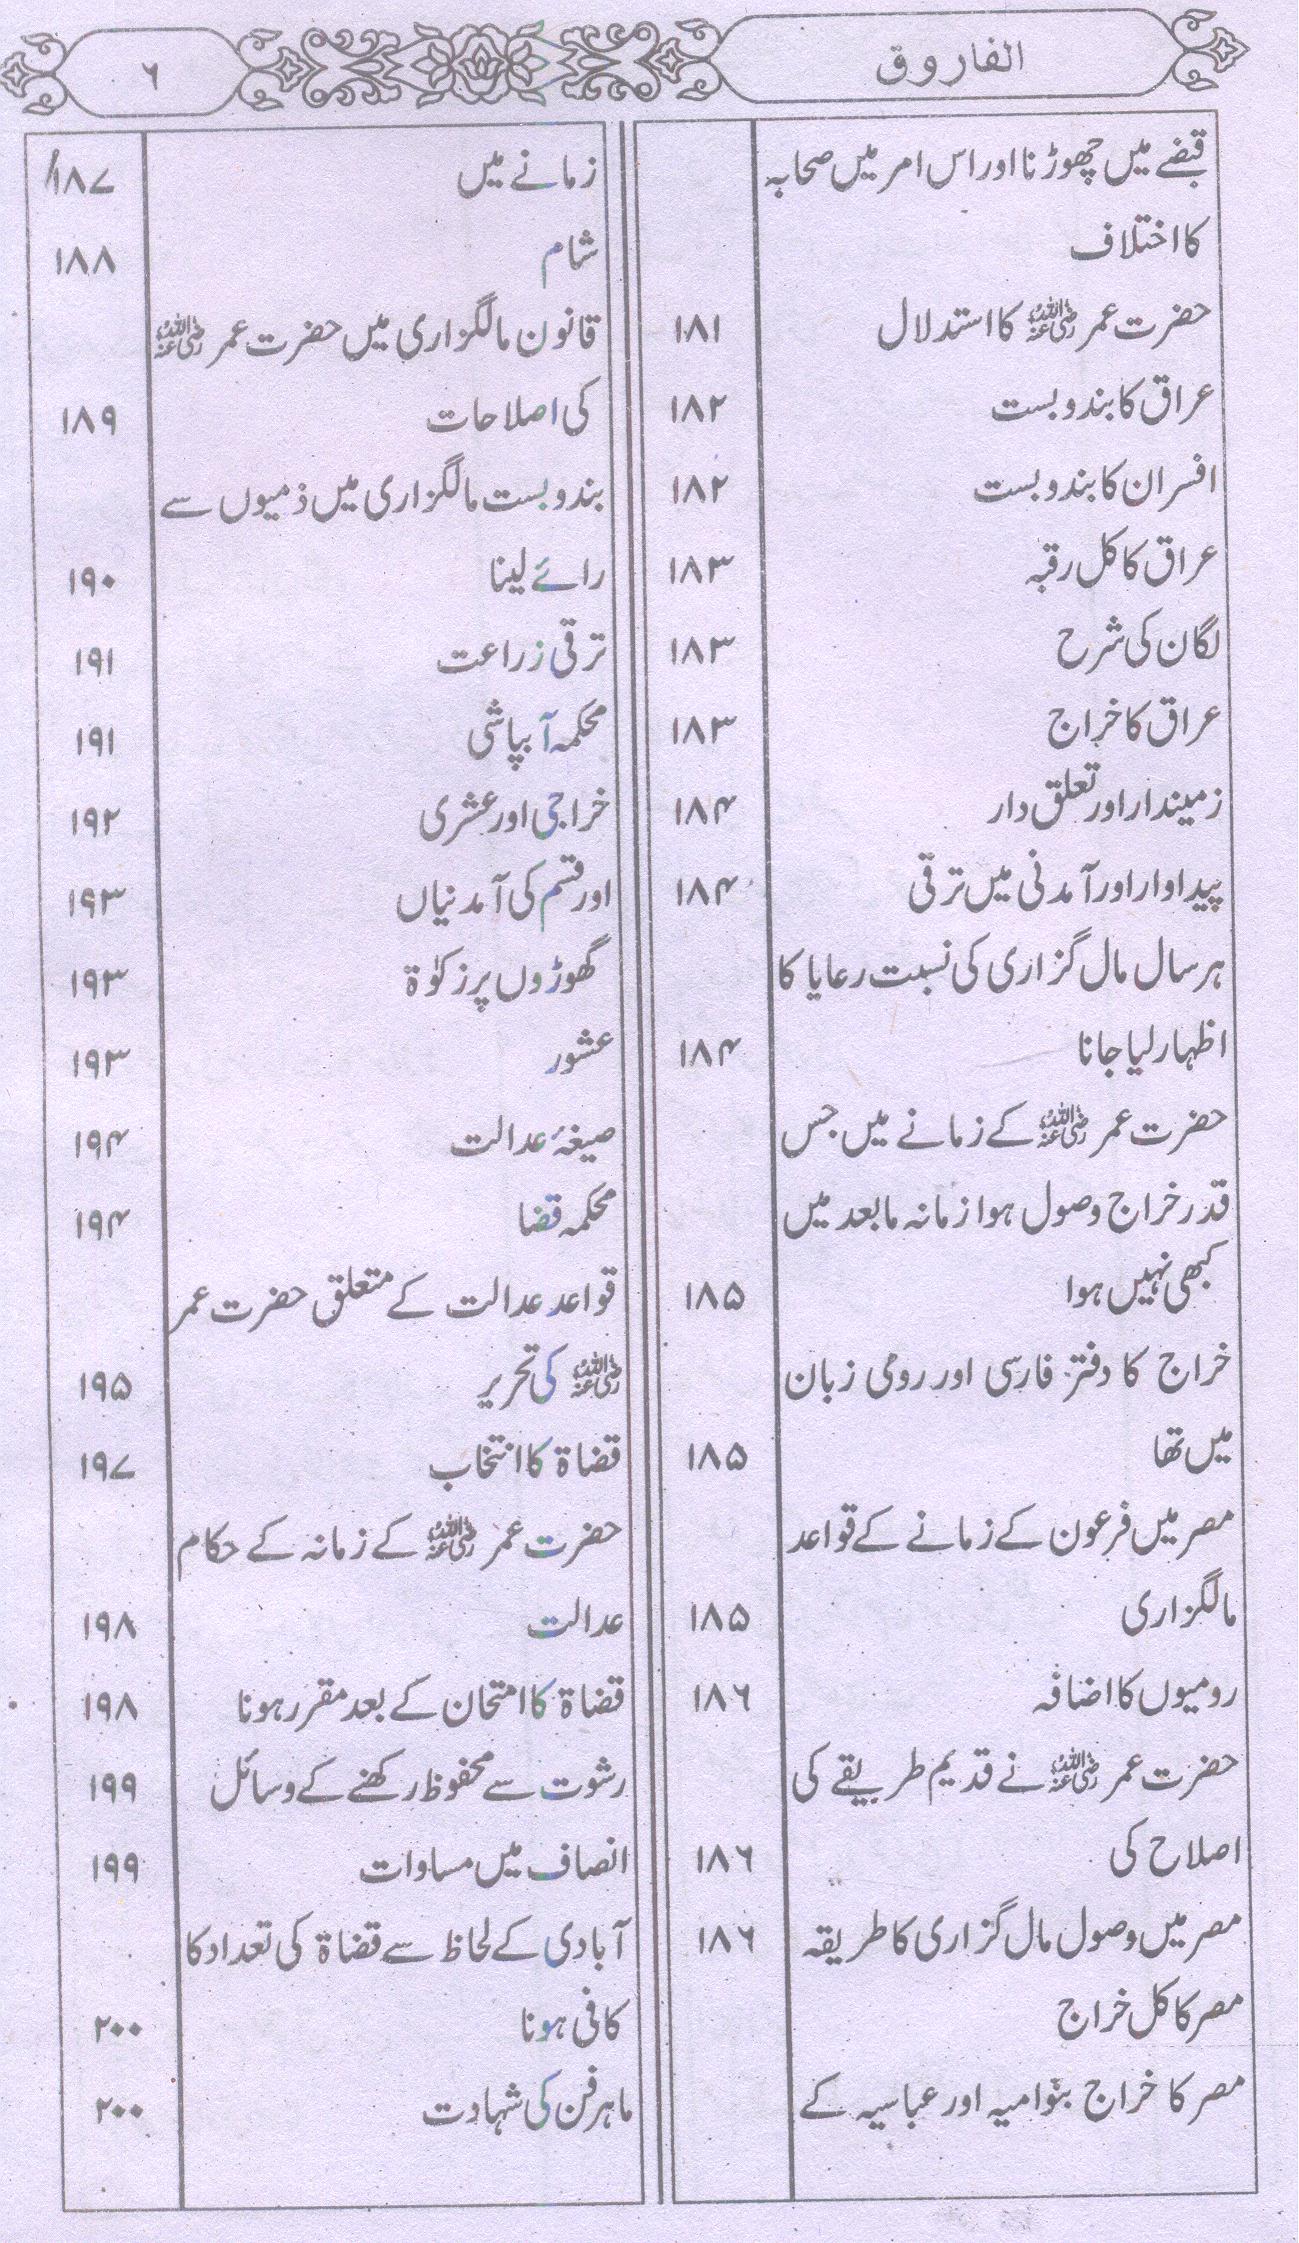 الفاروق
۶
قبضے میں چھوڑنا اور اس امر میں صحابہ
کا اختلاف
حضرت عمر ؓ کا استدلال ۱۸۱
عراق کا بندوبست ۱۸۲
افسران کا بندوبست ۱۸۲
عراق کا کل رقبہ ۱۸۳
لگان کی شرح ۱۸۳
عراق کا خراج ۱۸۳
زمیندار اور تعلق دار ۱۸۴
پیداوار اور آمدنی میں ترقی ۱۸۴
ہر سال مال گزاری کی نسبت رعایا کا
اظہار لیا جانا ۱۸۴
حضرت عمر ؓ کے زمانے میں جس
قدر خراج وصول ہوا زمانہ مابعد میں
کبھی نہیں ہوا ۱۸۵
خراج کا دفتر فارسی اور رومی زبان
میں تھا ۱۸۵
مصر میں فرعون کے زمانے کے قواعد
مالگزاری ۱۸۵
رومیوں کا اضافہ ۱۸۶
حضرت عمر ؓ نے قدیم طریقے کی
اصلاح کی ۱۸۶
مصر میں وصول مال گزاری کا طریقہ ۱۸۶
مصر کا کل خراج
مصر کا خراج بنوامیہ اور عباسیہ کے
زمانے میں ۱۸۷
شام ۱۸۸
قانون مالگزاری میں حضرت عمر ؓ
کی اصلاحات ۱۸۹
بندوبست مالگزاری میں ذمیوں سے
رائے لینا ۱۹۰
ترقی زراعت ۱۹۱
محکمہ آبپاشی ۱۹۱
خراجی اور عشری ۱۹۲
اور قسم کی آمدنیاں ۱۹۳
گھوڑوں پر زکوٰۃ ۱۹۳
عشور ۱۹۳
صیغۂ عدالت ۱۹۴
محکمہ قضا ۱۹۴
قواعد عدالت کے متعلق حضرت عمر
ؓ کی تحریر ۱۹۵
قضاۃ کا انتخاب ۱۹۷
حضرت عمر ؓ کے زمانہ کے حکام
عدالت ۱۹۸
قضاۃ کا امتحان کے بعد مقرر ہونا ۱۹۸
رشوت سے محفوظ رکھنے کے وسائل ۱۹۹
انصاف میں مساوات ۱۹۹
آبادی کے لحاظ سے قضاۃ کی تعداد کا
کافی ہونا ۲۰۰
ماہر فن کی شہادت ۲۰۰